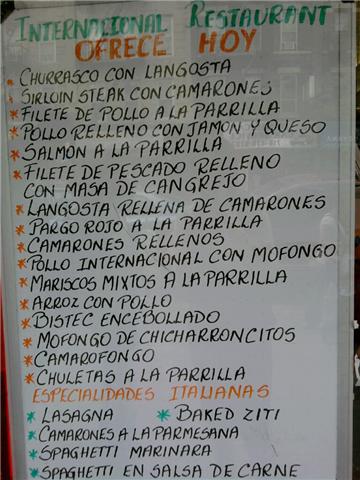 INTERNACIONAL RESTAURANT
OFRECE HOY
* CHURRASCO CON LANGOSTA
* SIRLOIN STEAK CON CAMARONES
* FILETE DE POLLO A LA PARRILLA
* POLLO RELLENO CON JAMON Y QUESO
* SALMON A LA PARRILLA
* FILETE DE PESCADO RELLENO
CON MASA DE CANGREJO
* LANGOSTA RELLENA DE CAMARONES
* PARGO ROJO A LA PARRILLA
* CAMARONES RELLENOS
* POLLO INTERNACIONAL CON MOFONGO
* MARISCOS MIXTOS A LA PARRILLA
* ARROZ CON POLLO
* BISTEC ENCEBOLLADO
* MOFONGO DE CHICHARRONCITOS
* CAMAROFONGO
* CHULETAS A LA PARRILLA
ESPECIALIDADES ITALIANAS
* LASAGNA * BAKED ZITI
* CAMARONES A LA PARMESANA
* SPAGHETTI MARINARA
* SPAGHETTI EN SALSA DE CARNE